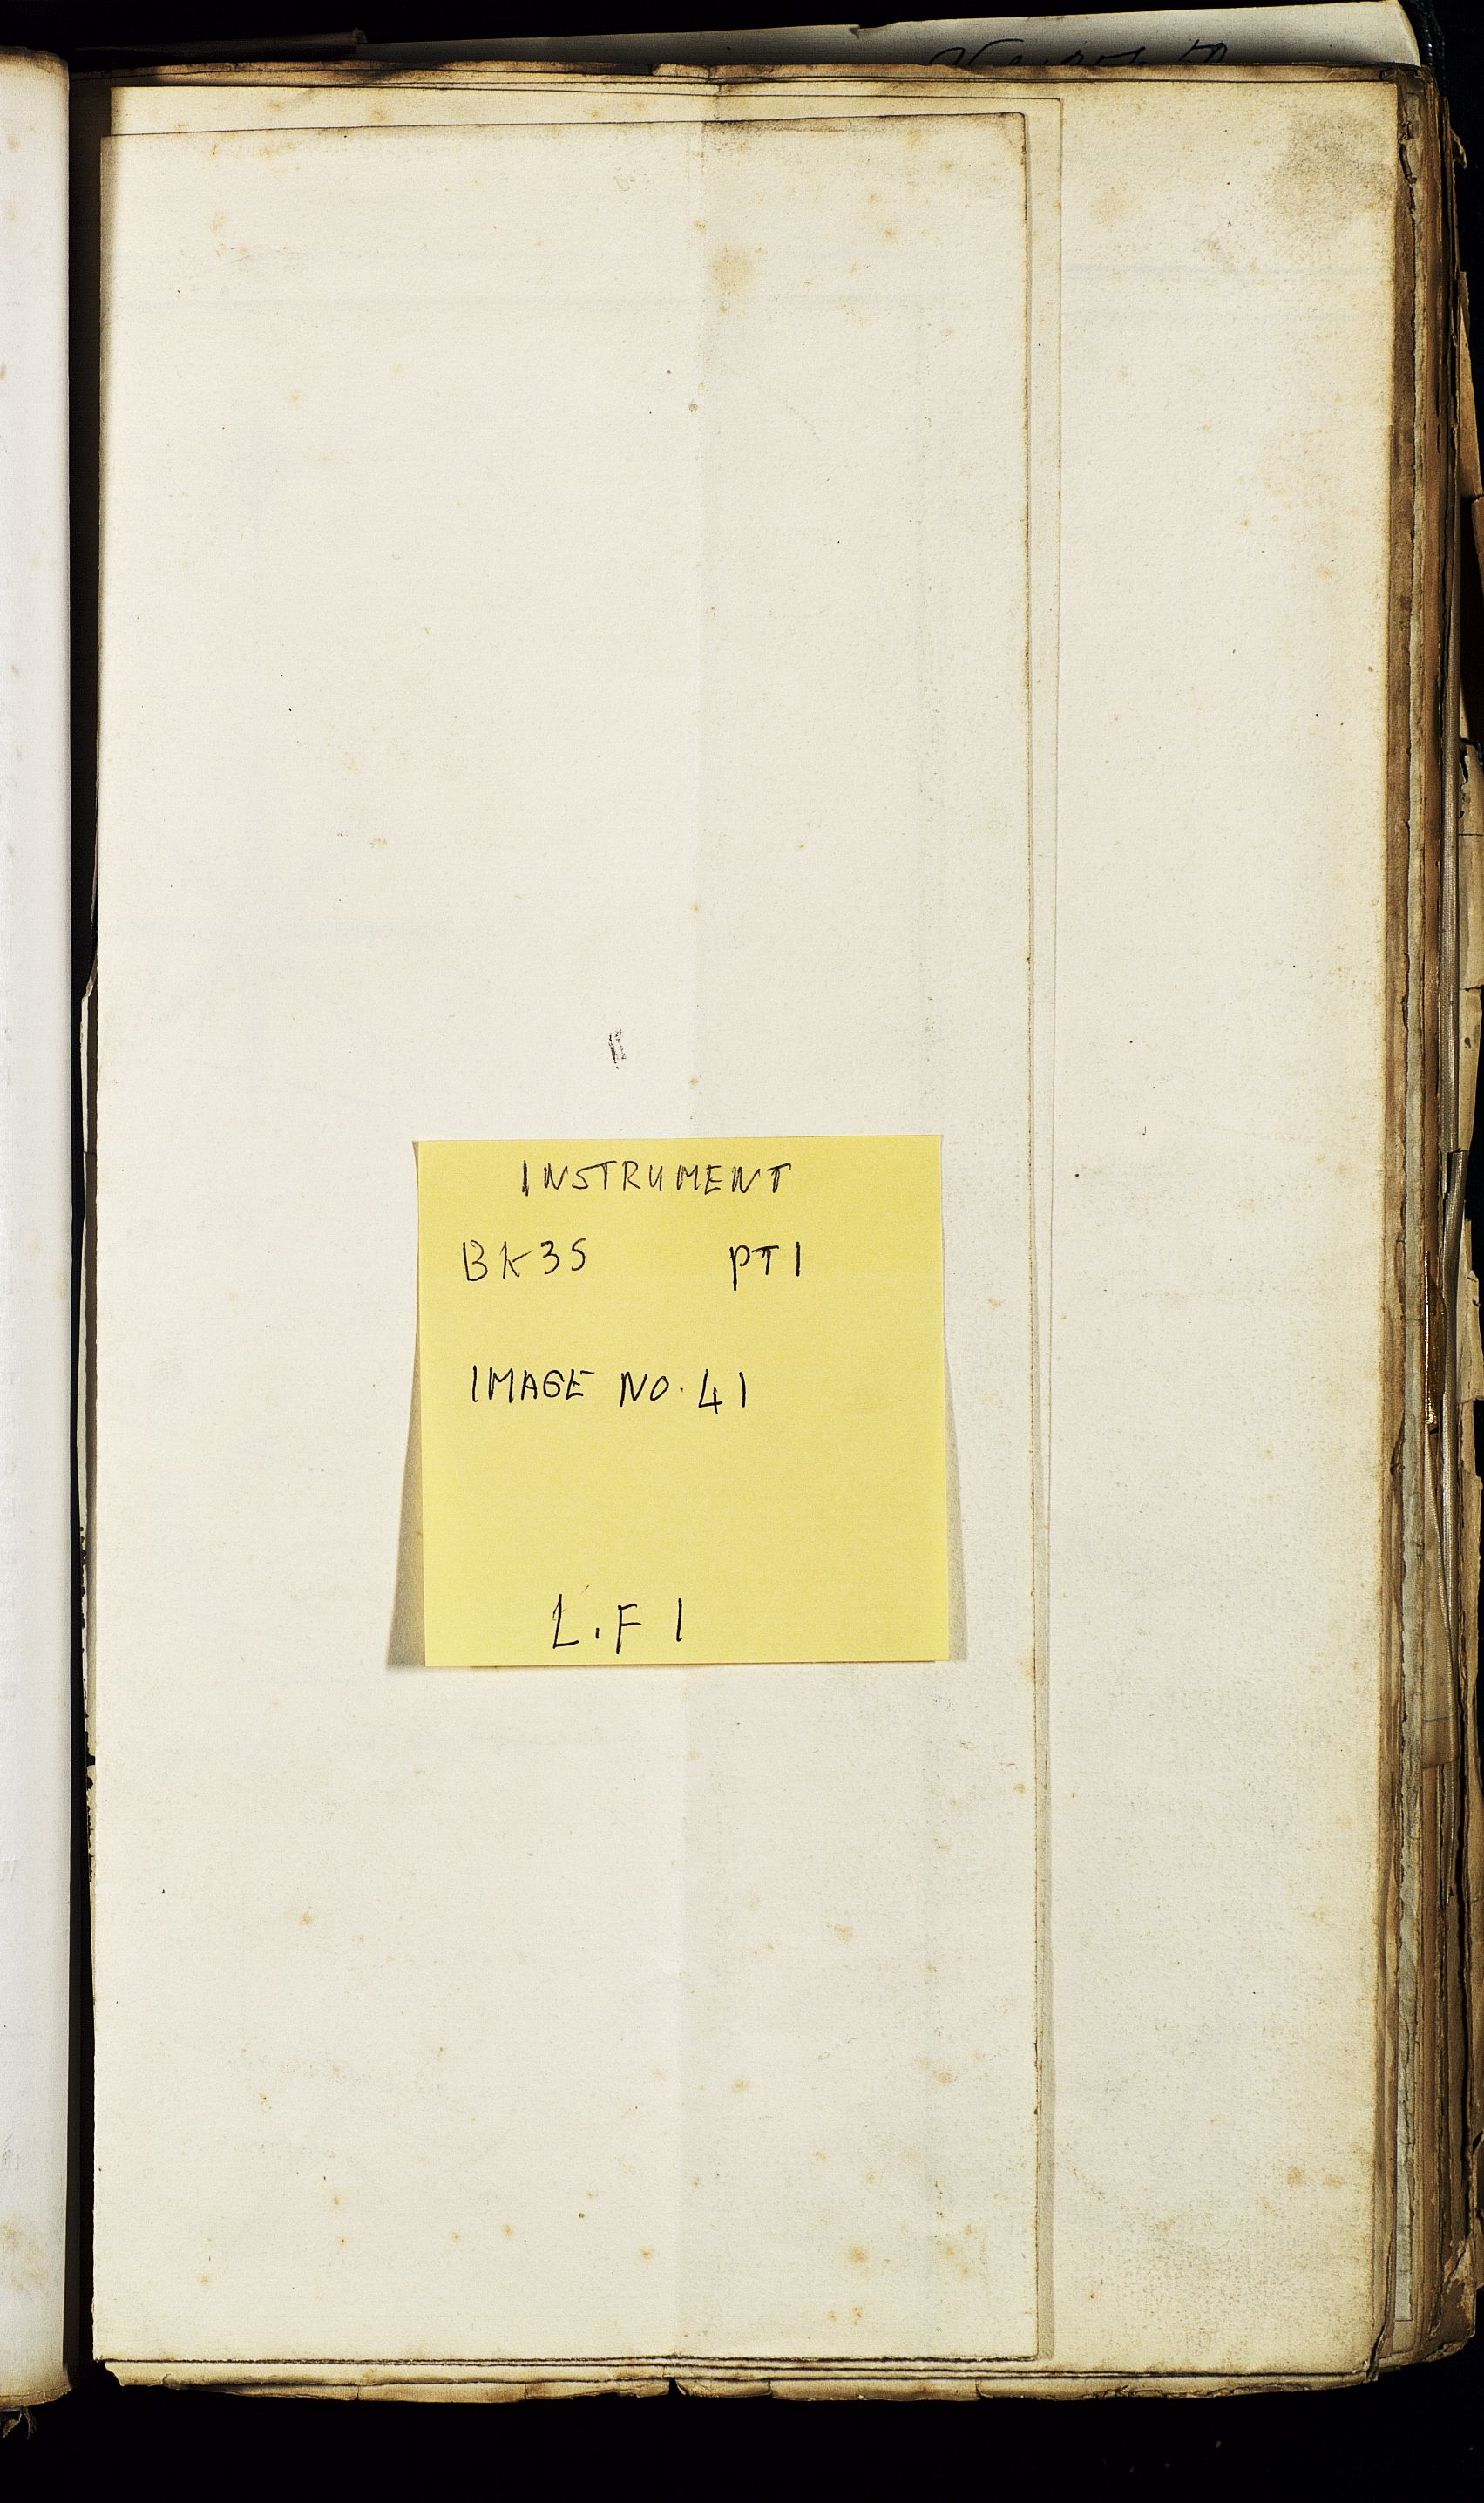 INSTRUMENT
BK35 PT1
IMAGE NO. 41
L.F 1